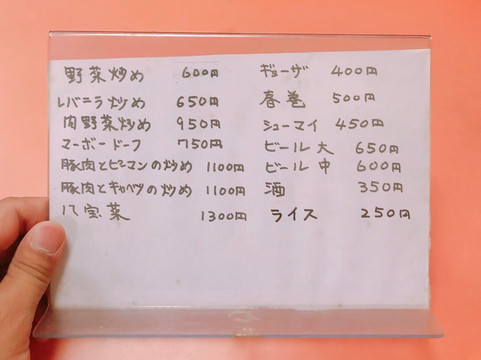 野菜炒め 600円
レバニラ炒め 650円
肉野菜炒め 950円
マーボードーフ 750円
豚肉とピーマンの炒め 1100円
豚肉とキャベツの炒め 1100円
八宝菜 1300円
ギョーザ 400円
春巻 500円
シューマイ 450円
ビール大 650円
ビール中 600円
酒 350円
ライス 250円